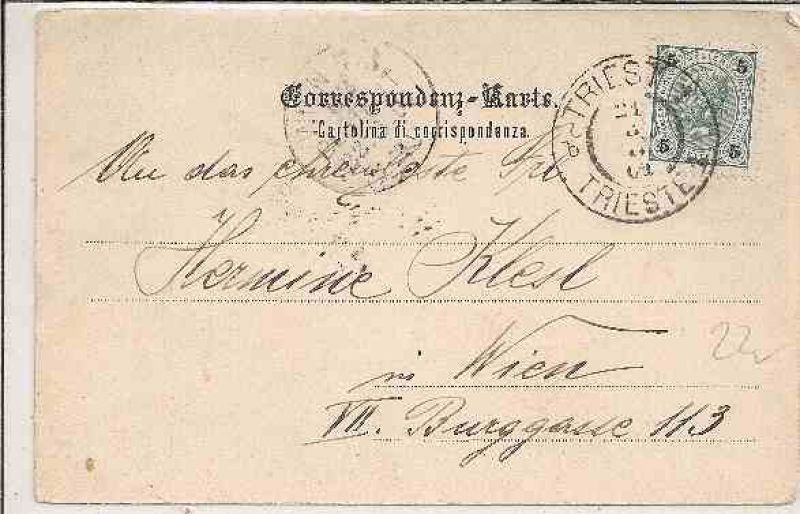 Correspondenz-Karte.
Cartolina di corrispondenza.
TRIESTE
TRIESTE
5 5
5 5
An das ehrengeste Frl
Hermine Klesl
in Wien
VII. Burggasse 113